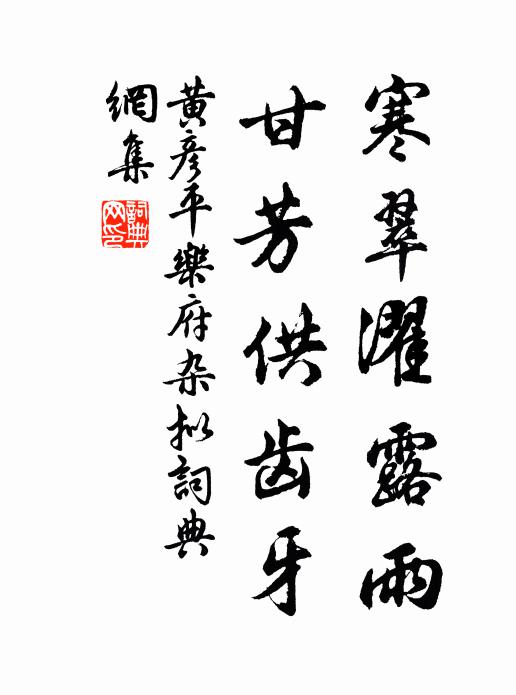 寒翠濯露雨
甘芳供齿牙
黄彦平樂府杂拟詞典
網集
詞典
网印